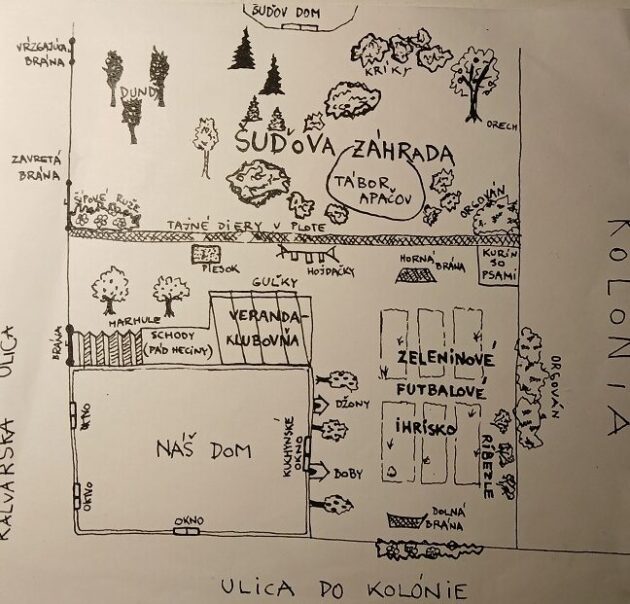 ŠUĎOV DOM
VŔZGAJÚCA
BRÁNA
DUND
KRÍKY
ORECH
ŠUĎOVA ZÁHRADA
ZAVRETÁ
BRÁNA
TÁBOR
APAČOV
ŠÍPOVÉ RUŽE
ORGOVÁN
TAJNÉ DIERY V PLOTE
PIESOK
HOJDAČKY
HORNÁ
BRÁNA
KURÍN
SO
PSAMI
KOLÓNIA
GUĽKY
MARHULE
VERANDA-
KLUBOVŇA
BRÁNA
SCHODY
(PÁD HECINY)
KALVÁRSKA ULICA
ZELENINOVÉ
FUTBALOVÉ
IHRISKO
ORGOVÁN
RÍBEZLE
OKNO
NÁŠ DOM
KUCHYNSKÉ
OKNO
DŽONY
BOBY
OKNO
OKNO
DOLNÁ
BRÁNA
ULICA DO KOLÓNIE